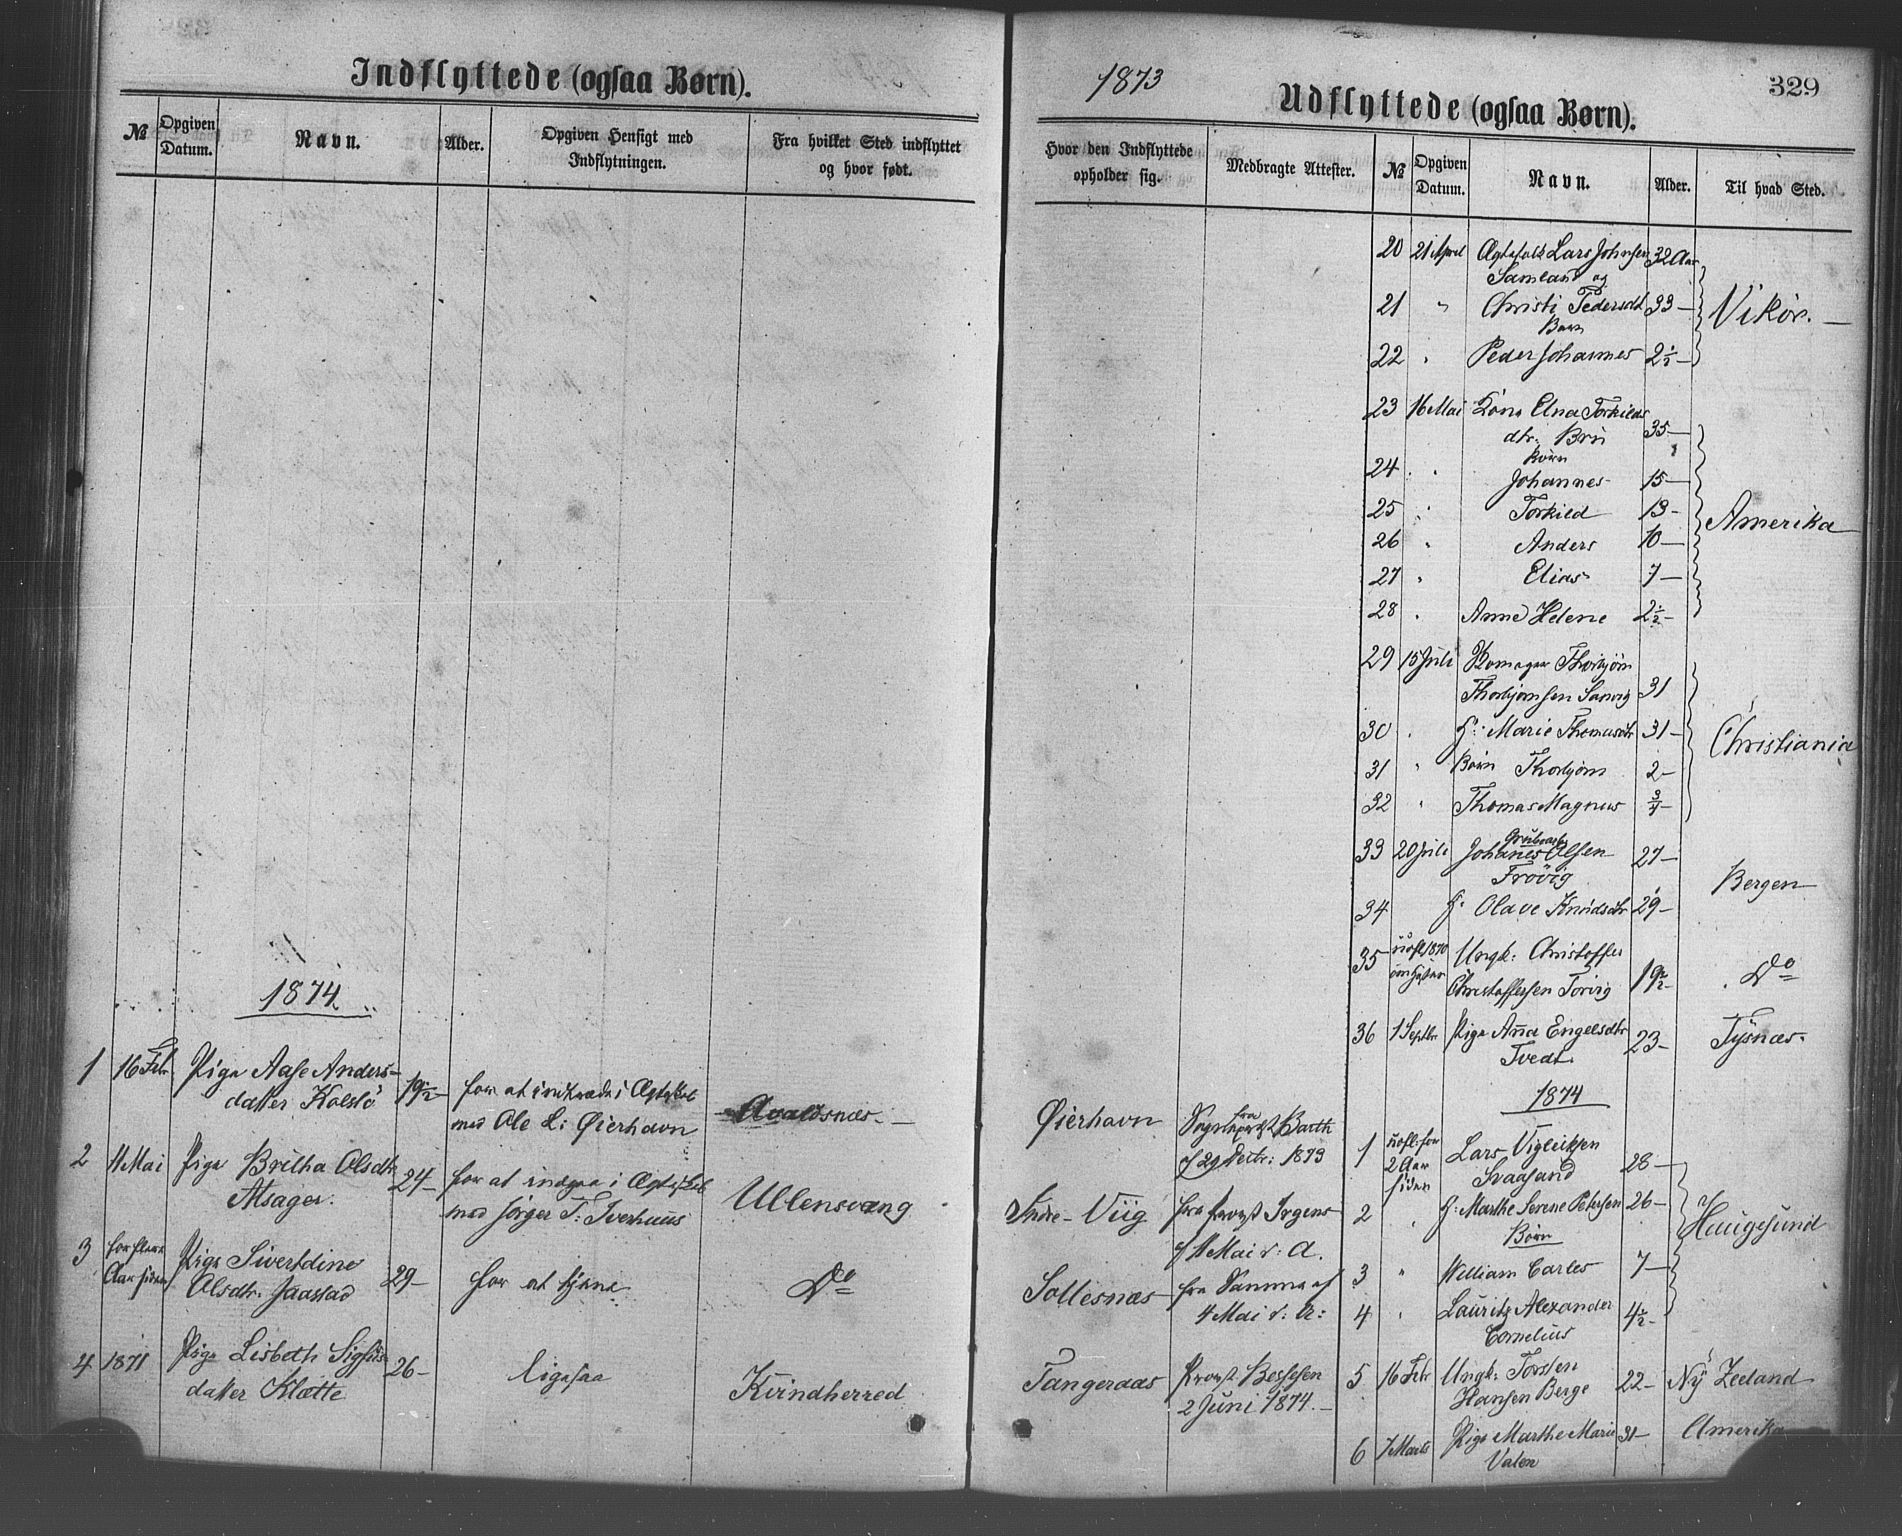 Indflyttede (ogsaa Børn).
№
Opgiven Datum.
Navn.
Alder.
Opgiven Hensigt med Indflytningen.
Fra hvilket Sted indflyttet og hvor født.
1874
1 16 Febr Pige Aase Anders- 19½
datter Kolslö
for at indtræde i Ægteskab
med Ole L: Øierhavn
Avaldsnæs
2 11 Mai Pige Britha Olsdtr 24
Alsager.
for at indgaa i Ægteskab
med Jörger T: Iverhuus
Ullensvang
3 for flere Pige Sivertdine 29
Aar siden Olsdtr. Jaastad
for at tjene
Do
4 1871 Pige Lisbeth 26
datter Klætte
ligesaa
Kvindherred
1873
Udflyttede (ogsaa Børn).
329
Hvor den Indflyttede opholder sig.
Medbragte Attester.
№
Opgiven Datum.
Navn.
Alder.
Til hvad Sted.
Øierhavn
fra
Sognepræst Barth
af 29 Decbr: 1873
Indre-Viig
fra Provst Irgens
af 11 Mai d: A.
Sollesnæs
fra Samme af
4 Mai d: A:
Tangeraas
Provst Bessesen
2 Juni 1874.
20 21 April Ægtefolk Lars Johnsen 32 Aar
Samland og
21 " Christi Pedersdt 33
Barn
22 " Peder Johannes 2½
Vikør.
23 16 Mai Kone Elna Torkilds
dtr. Brü 35
Børn
24 " Johannes 15
25 " Torkild 13
26 " Anders 10
27 " Elias 7
28 " Anne Helene 2½
Amerika
29 15 Juli Thorbjörn
Thorbjörnsen Sanvig 31
30 " H: Marie Thomasdtr 31
31 " Børn Thorbjörn 2
32 " Thomas Magnus ¾
Christiania
33 20 Juli Johanes Olsen 27
Frövig
34 H: Olave Knudsdtr 29
Bergen
35 Ungk: Christoffer
Christoffersen Torvig 19½
Do
36 1 Septbr Pige Anna Engelsdtr 23
Tvedt
Tysnæs.
1874
1 udfl: for Lars Vigleiksen
2 Aar Svaasand 28
siden
2 " H: Marthe Serene Petersen 26
Børn
3 " William Carles 7
4 " Lauritz Alexander 4½
Cornelius
Haugesund
5 16 Febr Ungk: Torsten
Hansen Berge 22
Ny Zeeland
6 7 Marts Pige Marthe Marie 31
Valen
Amerika